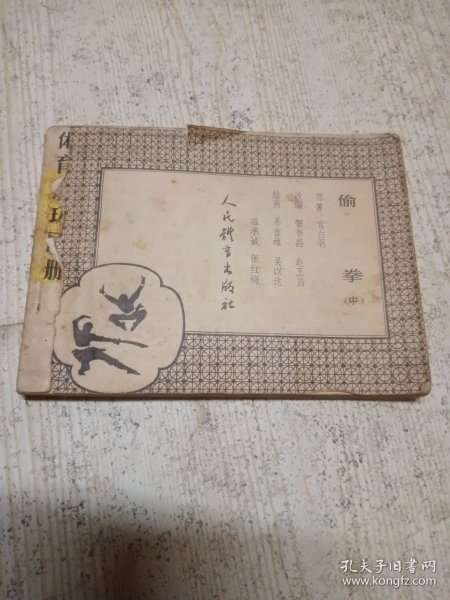 偷拳(中)
原著 宫白羽
改编 贺书昌 赵玉晶
绘画 姜吉维 吴以达
温承诚 张红梅
人民體育出版社
体育
册
孔夫子旧书网
www.kongfz.com